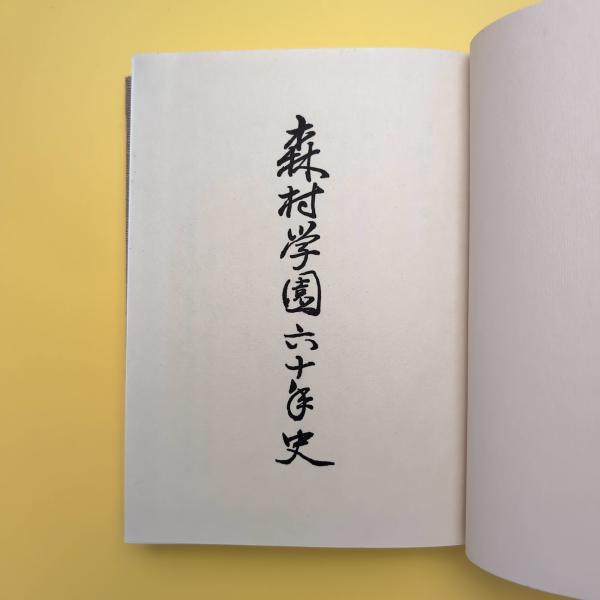 森村学園六十年史